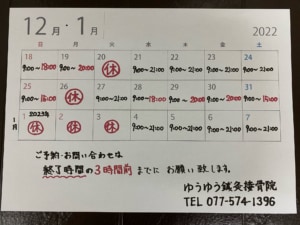 12月・1月
2022
日 月 火 水 木 金 土
18 19 20 21 22 23 24
9:00~18:00 9:00~20:00 休 9:00~21:00 9:00~21:00 9:00~21:00 9:00~21:00
25 26 27 28 29 30 31
9:00~16:00 休 9:00~21:00 9:00~18:00 9:00~20:00 9:00~20:00 9:00~15:00
1月 2023年
1 2 3 4 5 6 7
休 休 休 9:00~21:00 9:00~21:00 9:00~21:00 9:00~21:00
ご予約・お問い合わせは
終了時間の3時間前までに お願い致します。
ゆうゆう鍼灸接骨院
TEL 077-574-1396